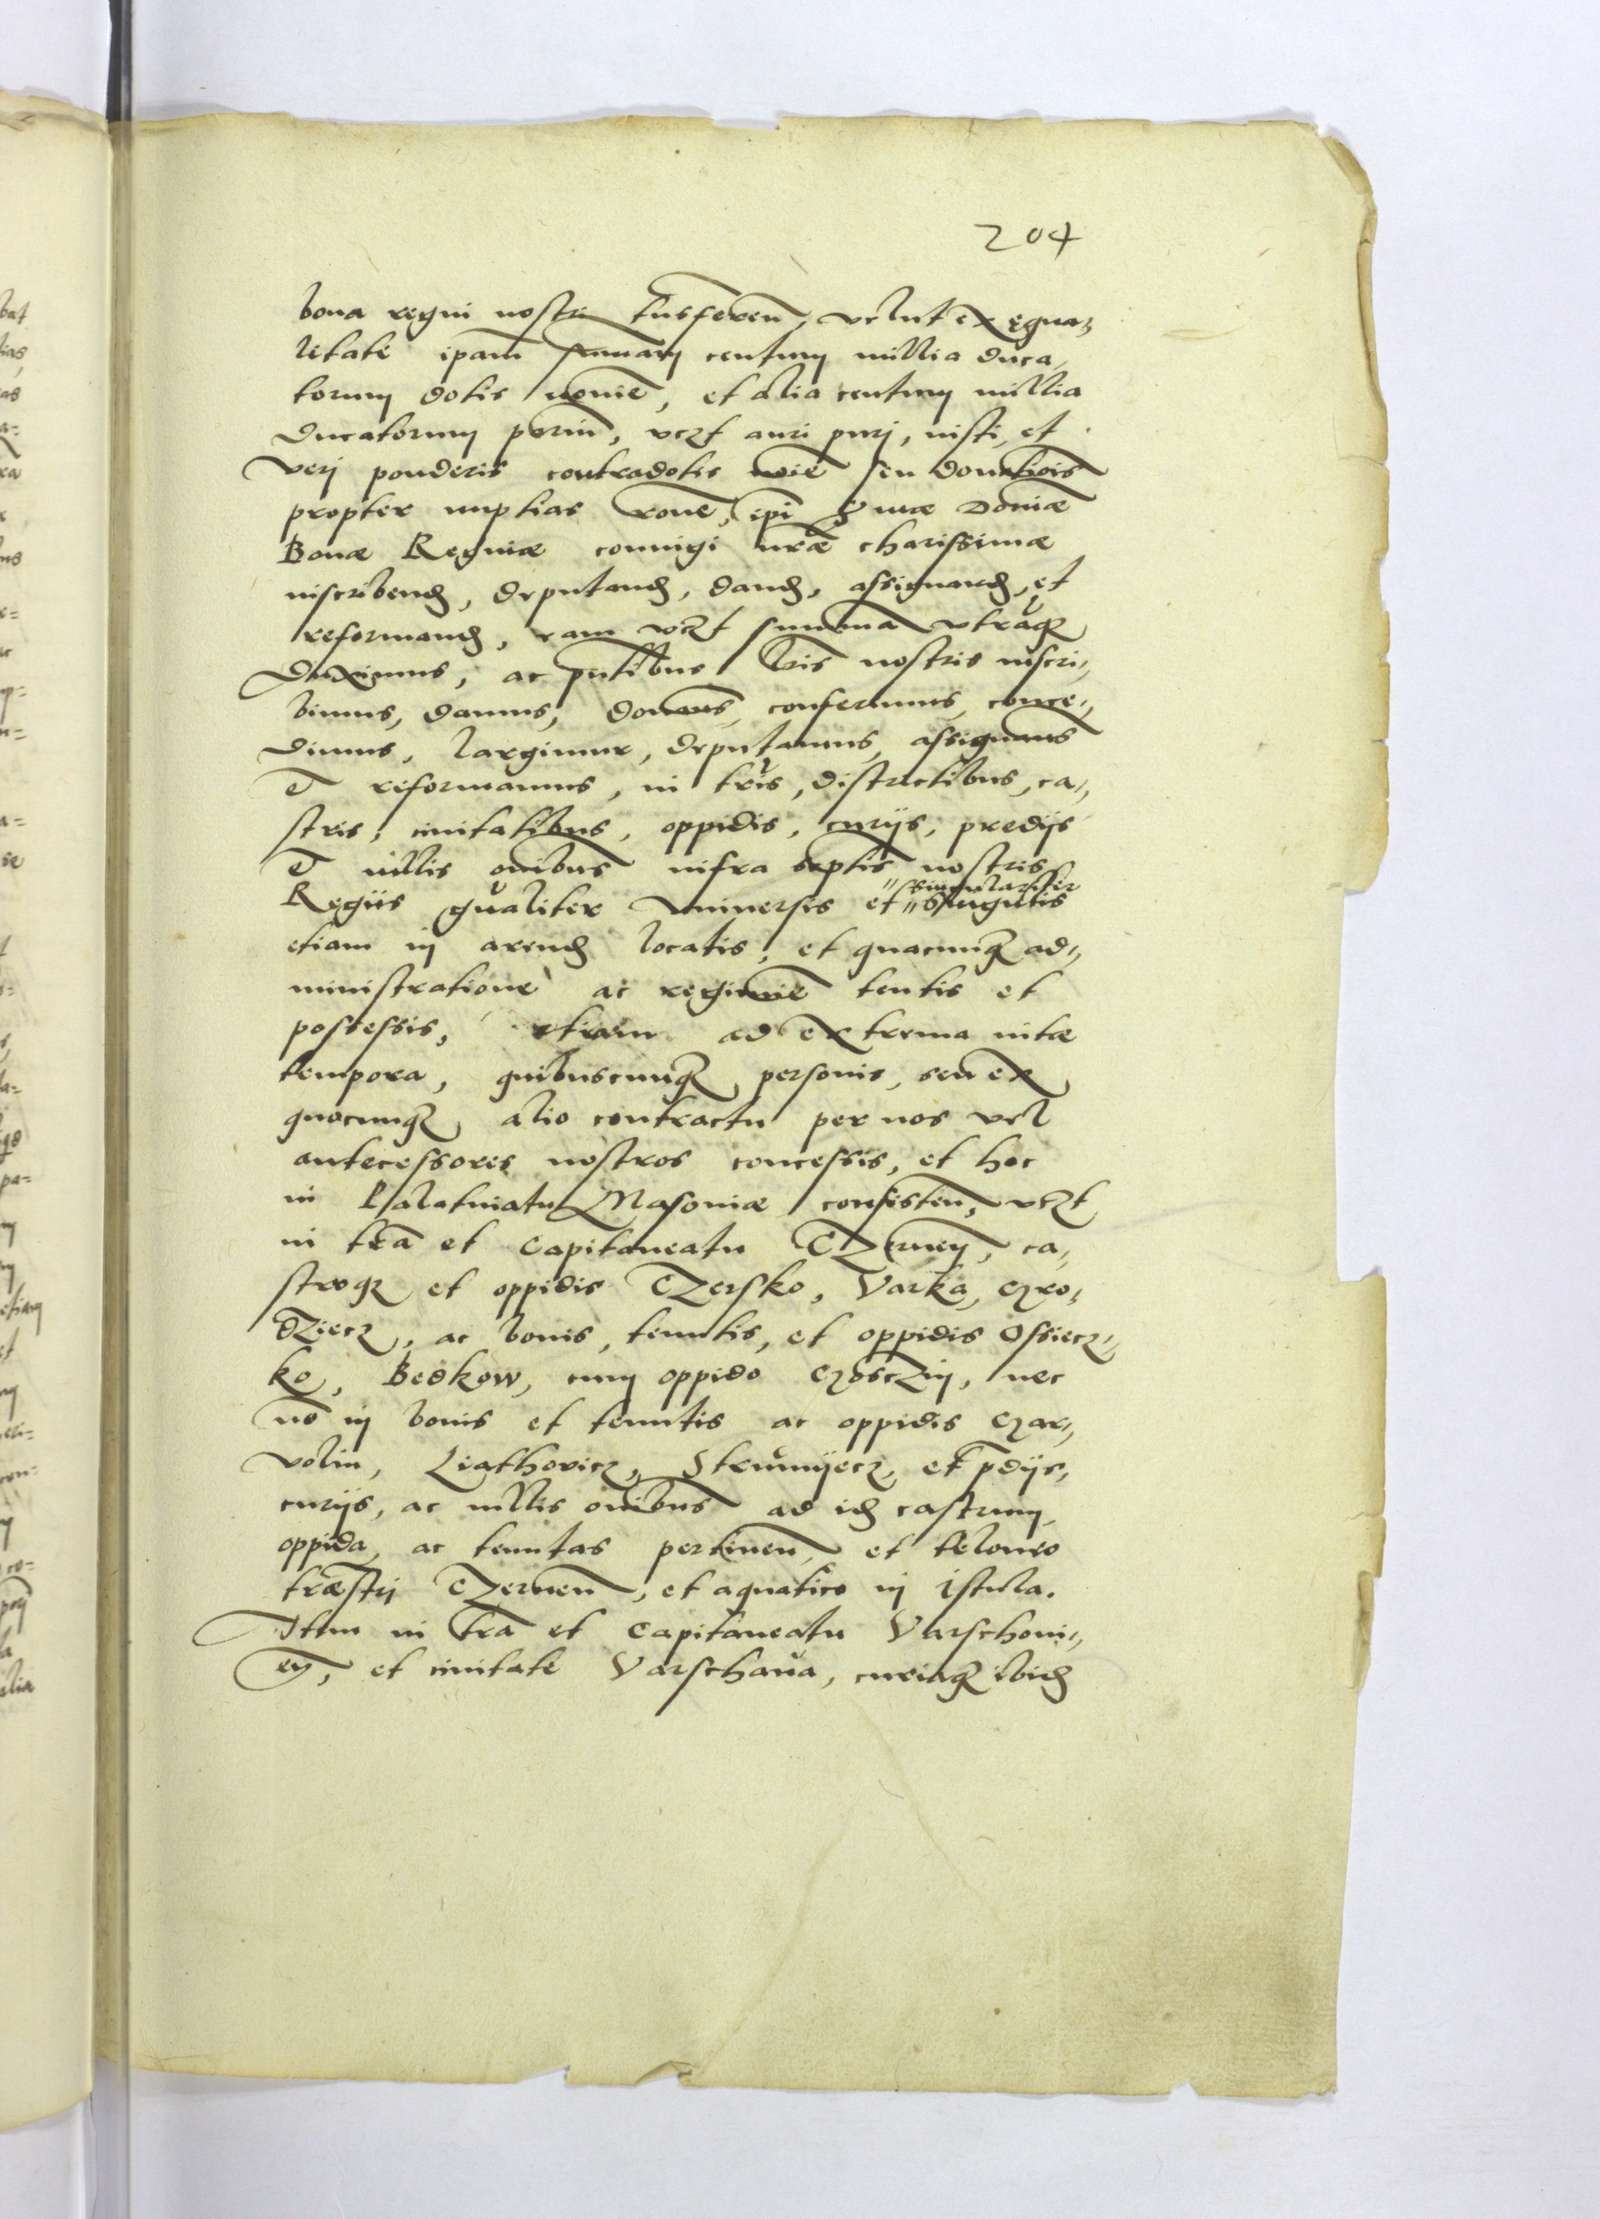 204
bona regni nostri tnsferen̄, velut ex ęqua⸗
litate ipam̄ summam centum millia duca⸗
torum dotis noīe, et alia centum millia
Ducatorum pariū, vczt auri puri, iusti, et
veri ponderis contradotis noīe seu donatiōis
propter nuptias rōne, ipi Domīæ
Bonæ Reginæ coniugi nr̄æ charissimæ
inscribend, deputand, dand, assignand, et
reformand, eam vczt summā vtrāq3
Duximus, ac pn̄tibus Lr̄is nostris inscri⸗
bimus, damus, donam̄s, conferimus, conce⸗
dimus, largimur, deputamus, assignam̄s
et reformamus, in tr̄is, districtibus, ca⸗
stris, ciuitatibus, oppidis, curijs, predijs
et villis om̄ibus infra sc̄ptis nostris
singulariter
Regiis qualiter vniuersis et singulis
etiam in arend locatis, et quacunq3 ad⸗
ministratione ac regimīe tentis et
possessis, etiam ad extrema vitæ
tempora, quibuscunq3 personis, seu ex
quocunq3 alio contractu per nos vel
antecessores nostros concessis, et hoc
in Palatinatu Masouiæ consisten̄, vczt
in tr̄a et Capitaneatu Czernen̄, ca⸗
stroq3 et oppidis Czersko, Varka, Gro⸗
dziecz, ac bonis, tenutis, et oppidis Ossiecz⸗
ko, Bedkow, cum oppido Gosczin, nec
nō in bonis et tenutis ac oppidis Gar⸗
volin, Liathovicz, Stromijecz, et p̄dijs,
curijs, ac villis om̄ibus ad id castrum,
oppida, ac tenutas pertinen̄, et teloneo
tr̄æstri Czernen̄, et aquatico in Istula.
Item in tr̄a et Capitaneatu Varschoui⸗
en̄, et ciuitate Varschaua, curiaq3 ibid